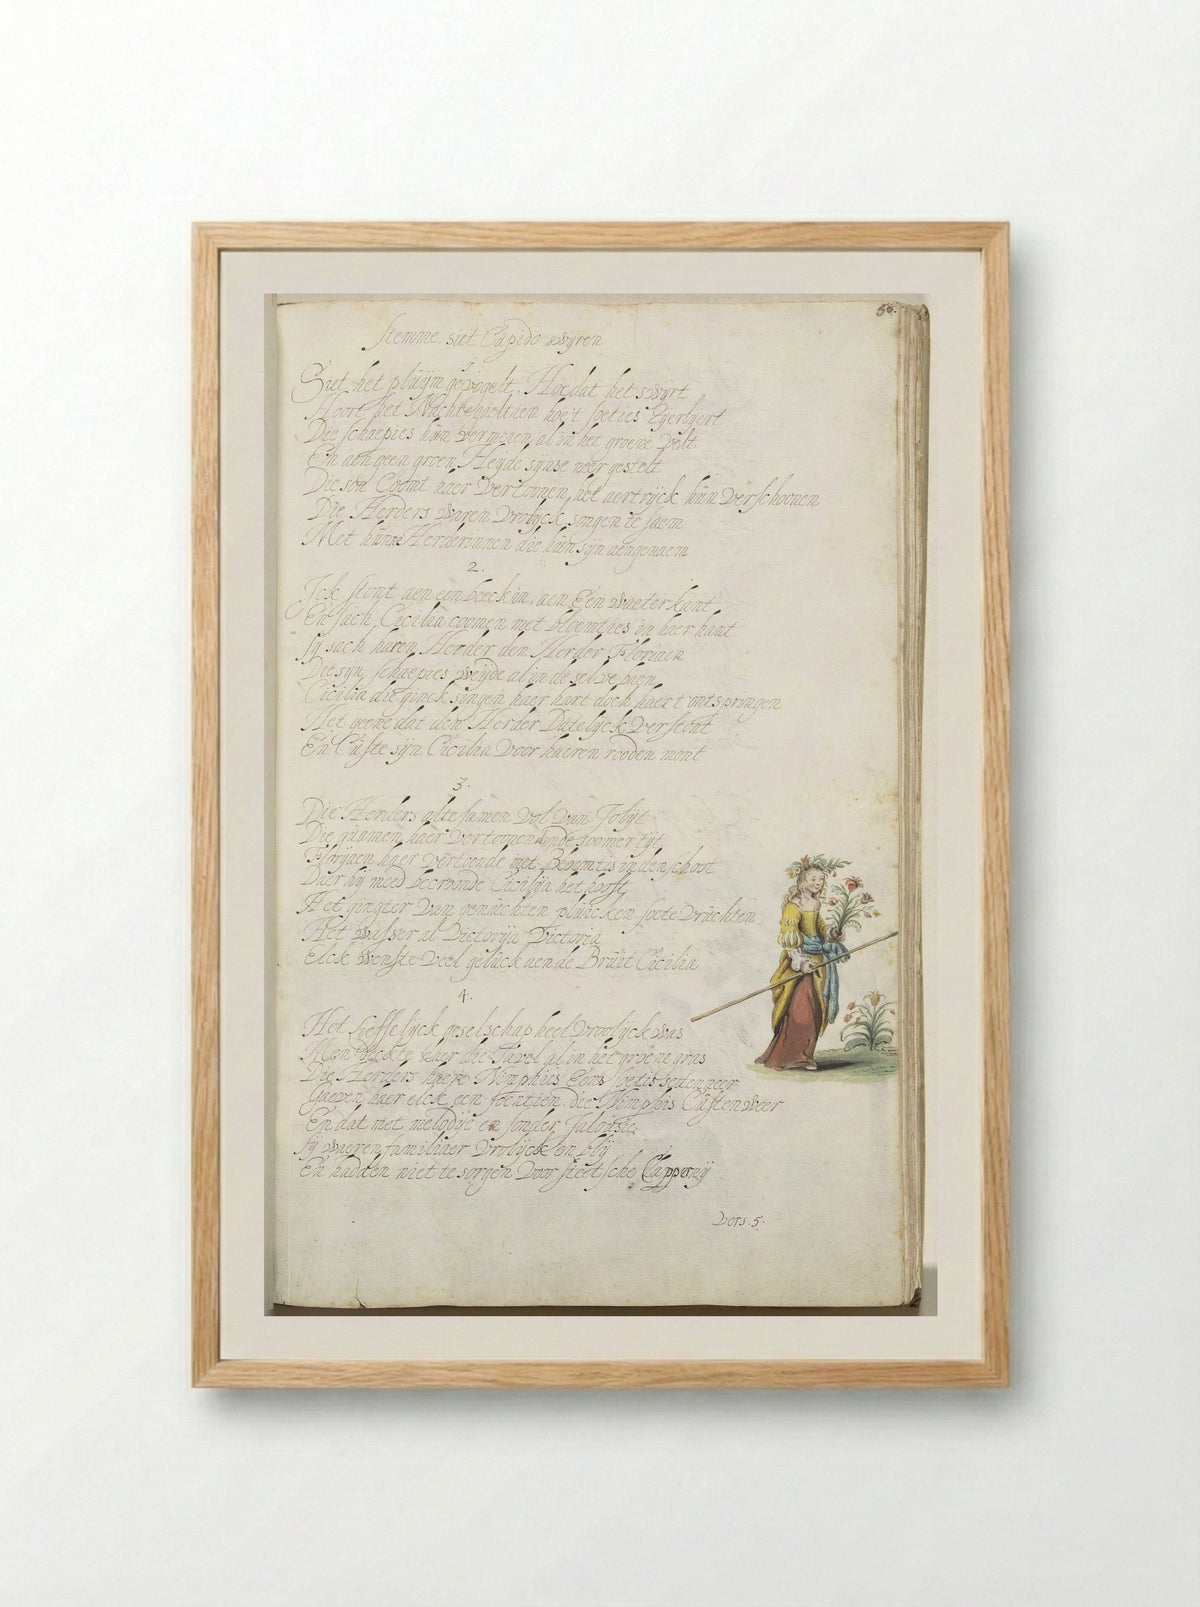 56.
Stemme. siet Cúpido wijren
1
Siet het plúijm gevogelt, Hoe dat het swijrt
Hoort het Nachtegaeltien hoe't soeties
Die schaepies hún vermenen al in het groene velt
En aen geen groen Heijde sijnse neer gestelt
Die son Coomt haer vertoonen, het aertrijck hún verschoonen
Die Herders waren vrolijck songen te saem
Met húnne Herderinnen die hún sijn aengenaem
2.
Ick stont aen een beeckin, aen Een waeter kant
En sach, Cicilia coomen met bloemties in haer hant
sij sach haren Herder den Herder Floriaen
Die sijn schaepies weijde al in de selve baen
Cicilia die ginck singen haer hart doch haer t'ontspringen
Het geene dat den Herder Datelijck verstont
En Cúste sijn Cicilia voor haeren rooden mont
3.
Die Herders alte samen vol van Jolijt
Die quamen haer vertoonen inde soomer tijt
Florijaen haer vertoonde met bloemtis in den schoot
Daer hij med becroonde Cicilija het hooft
Het ginger van genúchten plúicken soete vrúchten
Het wasser al Victorija Victoria
Elck wenste veel gelúck aen de Brúit Cicilia
4.
Het Lieffelijck geselschap heel vroolijck was
Men deckte daer die Tavel al in het groene gras
Die Herders haere Nimphies Eens soetis seten neer
Gaeven haer elck een soentien die Nimphis Cústen weer
En dat met melodije en sonder Jaloúsie
sij waeren familiaer vrolijck en blij
En hadden niet te sorgen voor steetsche Capperij
Vers. 5.